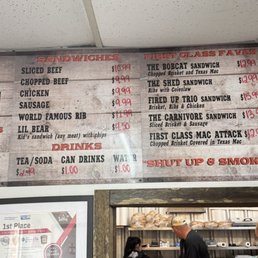 SANDWICHES
SLICED BEEF $10.99
CHOPPED BEEF $9.99
CHICKEN $9.99
SAUSAGE $9.99
WORLD FAMOUS RIB $11.99
LIL BEAR $9.50
Kid's sandwich (any meat) with chips
DRINKS
TEA/SODA CAN DRINKS WATER
$2.99 $1.00 $1.00
FIRST CLASS FAVES
THE BOBCAT SANDWICH
Chopped Brisket and Texas Mac
THE SHED SANDWICH
Rib with Coleslaw
FIRED UP TRIO SANDWICH
Brisket, Ribs & Chicken
THE CARNIVORE SANDWICH
Sliced Brisket & Sausage
FIRST CLASS MAC ATTACK
Chopped Brisket Covered in Texas Mac
SHUT UP & SMOK
1st Place